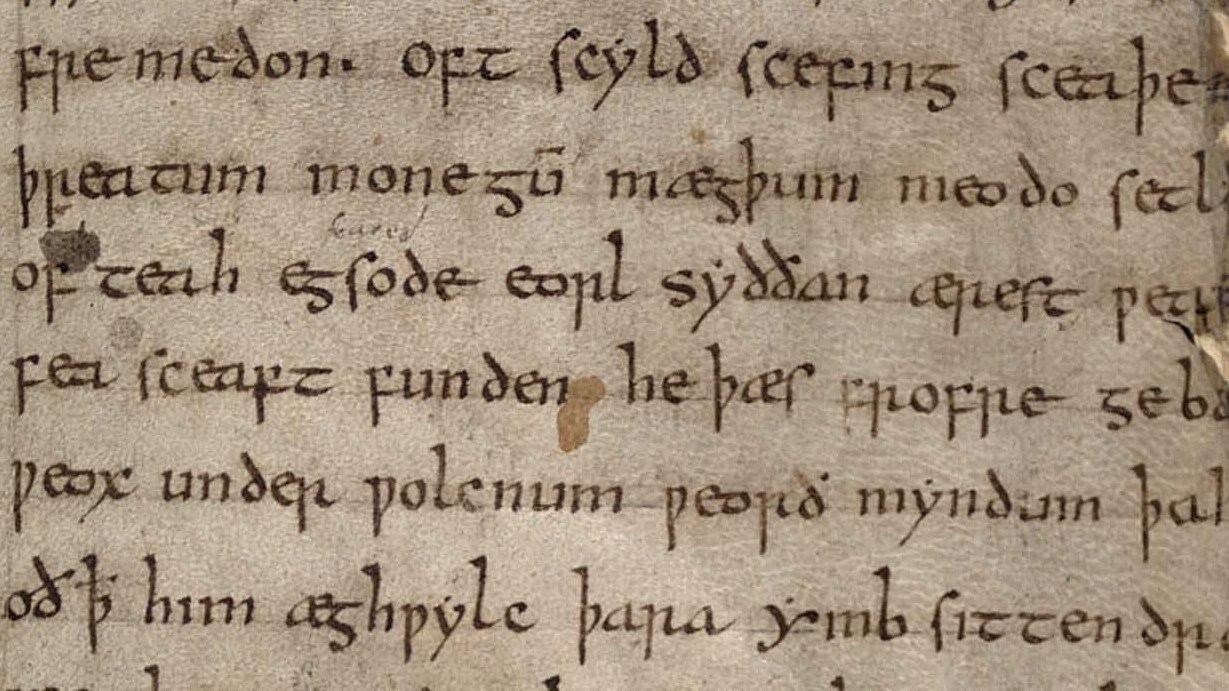 fremedon. oft scyld scefing sceaþe
þreatum monegū mægþum meodo setl
of teah egsode eorl syððan ærest ƿear
fea sceaft funden he þæs frofre geba
ƿeox under ƿolcnum ƿeorð myndum þah
oð ꝥ him æghƿylc þara ymb sittendra